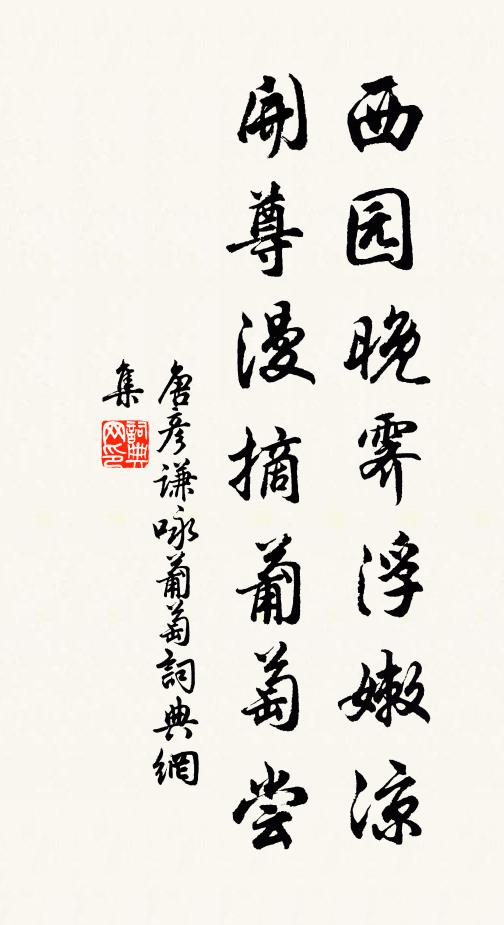 西园晚霁浮嫩凉
開尊漫摘葡萄尝
唐彦谦咏葡萄詞典網
集
詞典
网印